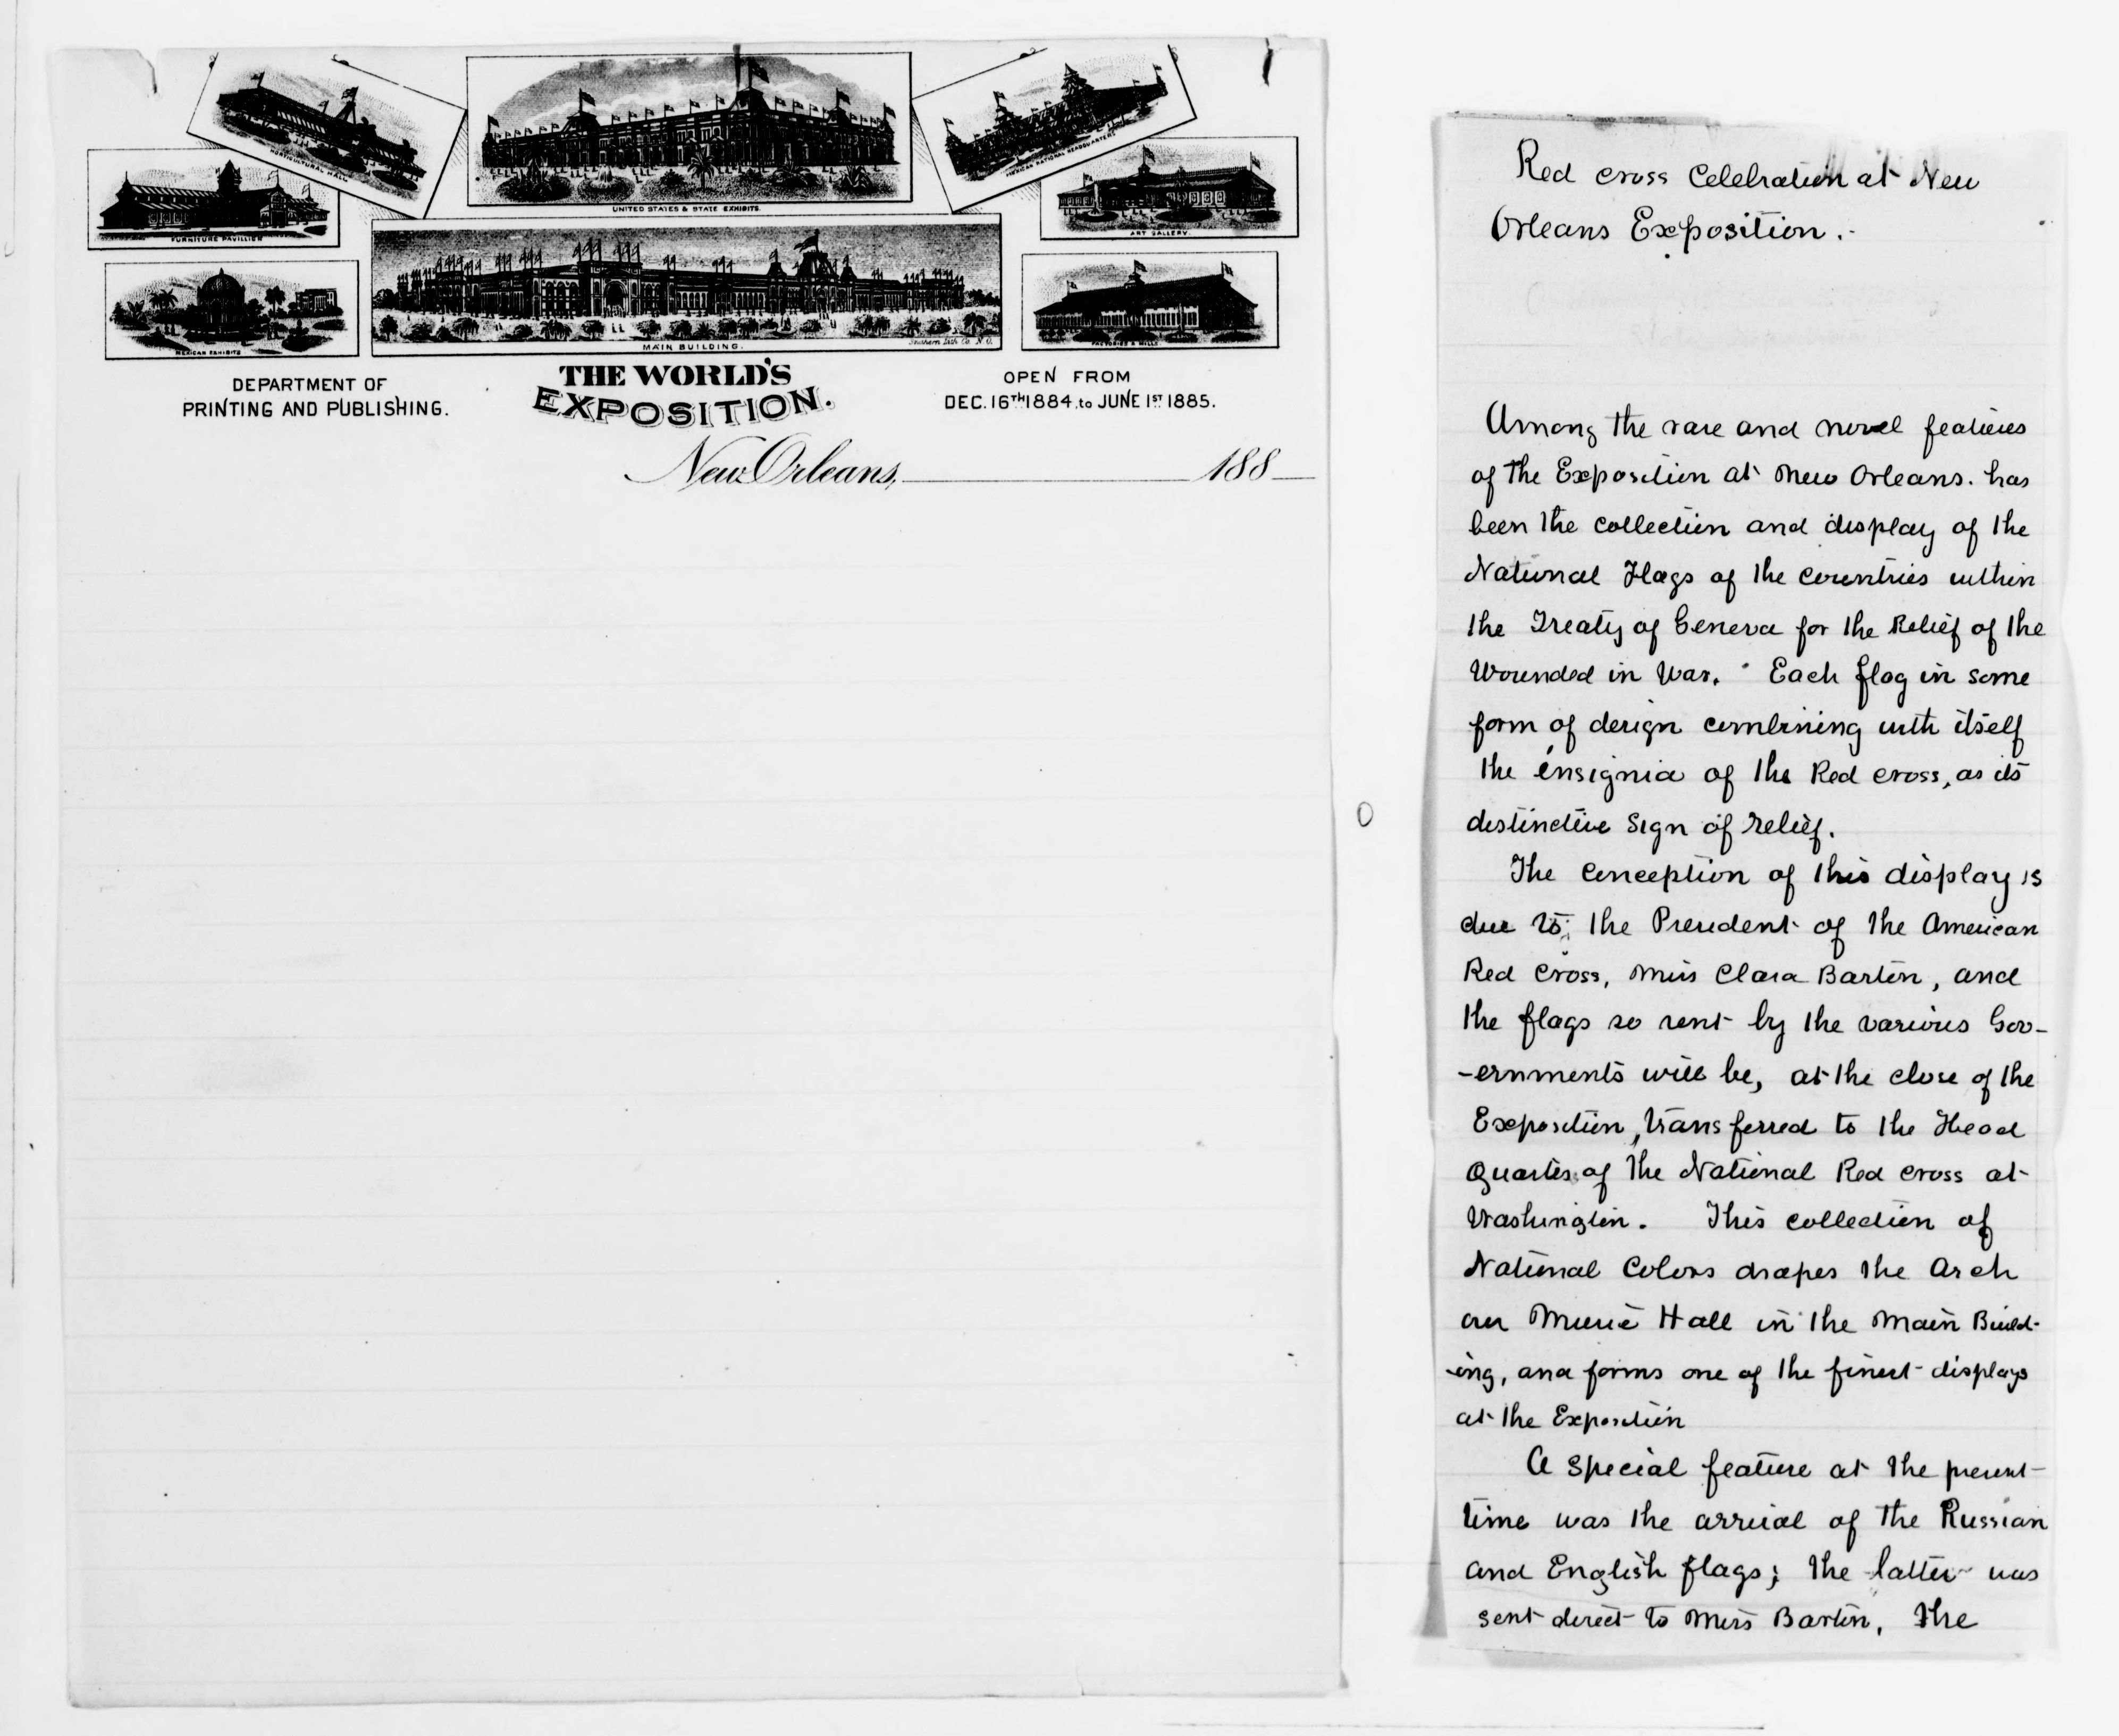 HORTICULTURAL HALL
UNITED STATES & STATE EXHIBITS.
MEXICAN NATIONAL HEADQUARTERS
FURNITURE PAVILLIEN
ART GALLERY.
MEXICAN EXHIBITS
MAIN BUILDING.
Southern Lith Co. N.O.
FACTORIES & MILLS
DEPARTMENT OF
PRINTING AND PUBLISHING.
THE WORLD'S
EXPOSITION.
OPEN FROM
DEC. 16TH 1884, to JUNE 1ST 1885.
New Orleans, 188
Red cross Celebration at New
Orleans Exposition.-
Among the rare and novel features
of the Exposition at New Orleans. has
been the collection and display of the
National Flags of the Countries within
the Treaty of Geneva for the Relief of the
Wounded in War. Each flag in some
form of design combining with itself
the insignia of the Red cross, as its
distinctive Sign of relief.
The conception of this display is
due to, the President of the American
Red Cross, Miss Clara Barton, and
the flags so sent by the various Gov-
-ernments will be, at the close of the
Exposition, transferred to the Head
Quarters of the National Red cross at
Washington. This collection of
National Colors drapes the Arch
over Music Hall in the Main Build-
-ing, and forms one of the finest displays
at the Exposition
A special feature at the present
time was the arrival of the Russian
and English flags; the latter was
sent direct to Miss Barton, the